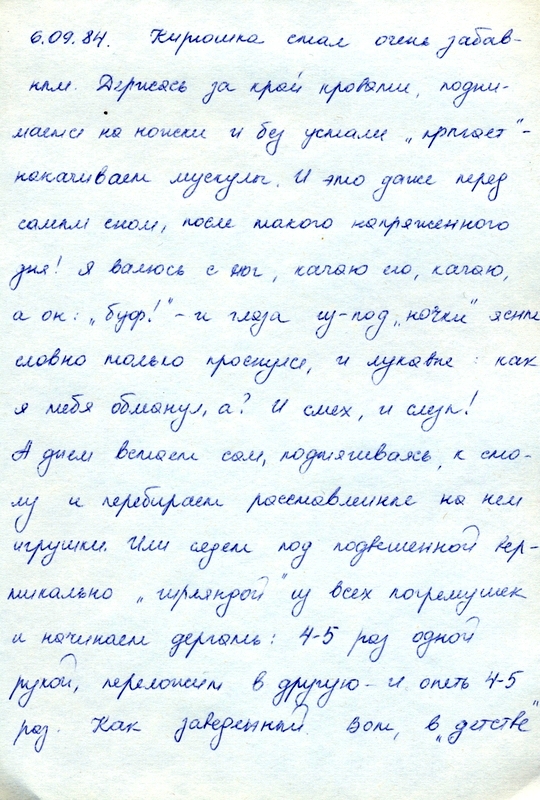 6.09.84. Кирюшка стал очень забав-
ным. Держась за край кровати, подни-
мается на ножки и без устали „прыгает" -
накачивает мускулы. И это даже перед
самым сном, после такого напряженного
дня! Я валюсь с ног, качаю его, качаю,
а он: „буф!" - и глаза из-под „ночки" ясные
словно только проснулся, и лукавые: как
я тебя обманул, а? И смех, и слезы!
А днем встает сам, подтягиваясь, к сто-
лу и перебирает расставленные на нем
игрушки. Или сядет под подвешенной вер-
тикально „гирляндой" из всех погремушек
и начинает дергать: 4-5 раз одной
рукой, переложит в другую - и опять 4-5
раз. Как заведенный. Вот, в „детстве"